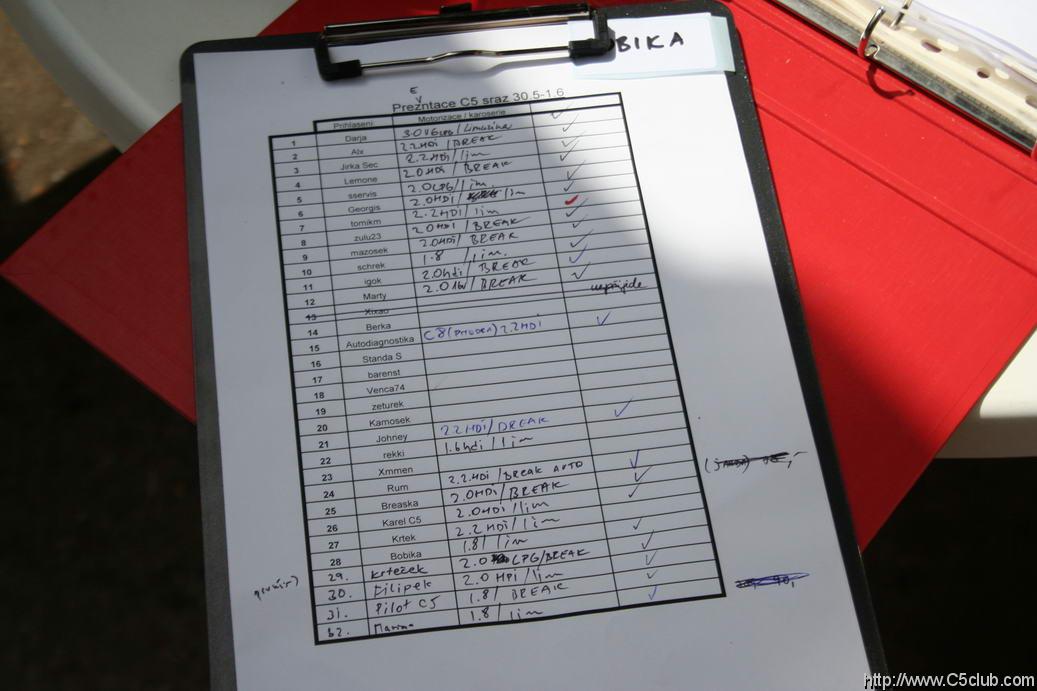 BIKA
E
Prezntace C5 sraz 30.5-1.6
Prihlaseni Motorizace / karoserie ✓
1 Darja 3.0 V6 LPG / Limusina ✓
2 Alx 2.2 HDi / BREAK ✓
3 Jirka Sec 2.2 HDi / lim ✓
4 Lemone 2.0 HDi / BREAK ✓
5 sservis 2.0 LPG / lim. ✓
6 Georgis 2.0 HDi / lim ✓
7 tomikm 2.2 HDI / lim ✓
8 zulu23 2.0 HDI / BREAK ✓
9 mazosek 2.0HDi / BREAK ✓
10 schrek 1.8 / lim. ✓
11 igok 2.0hdi / BREAK ✓
12 Marty 2.0 16V / BREAK
13 Xixao nepřijde
14 Berka
15 Autodiagnostika C8 2.2 HDI ✓
16 Standa S
17 barenst
18 Venca74
19 zeturek
20 Kamosek
21 Johney 2.2 HDI / BREAK ✓
22 rekki 1.6 hdi / lim
23 Xmmen
24 Rum 2.2 HDi / BREAK AUTO ✓
25 Breaska 2.0HDI / BREAK ✓
26 Karel C5 2.0HDI / lim ✓
27 Krtek 2.2 HDI / lim
28 Bobika 1.8 / lim ✓
29. Krtezek 2.0 LPG / BREAK ✓
30. Filipek 2.0 HPI / lim ✓
31. Pilot C5 1.8 / BREAK ✓
32. 1.8 / lim ✓
http://www.C5club.com